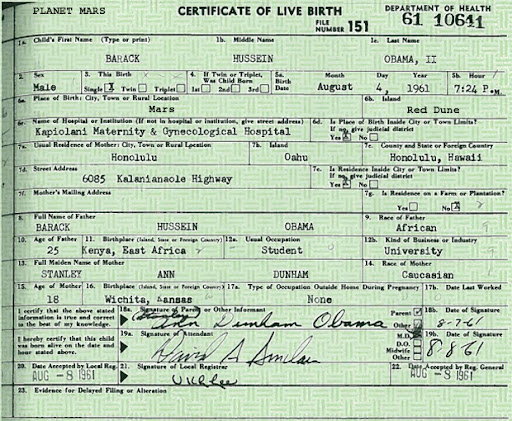 PLANET MARS CERTIFICATE OF LIVE BIRTH DEPARTMENT OF HEALTH
FILE NUMBER 151 61 10641
1a. Child's First Name (Type or print) 1b. Middle Name 1c. Last Name
BARACK HUSSEIN OBAMA, II
2. Sex 3. This Birth 4. If Twin or Triplet, Was Child Born 5a. Birth Date Month Day Year 5b. Hour
Male Single X Twin Triplet 1st 2nd 3rd August 4, 1961 7:24 P.M.
6a. Place of Birth: City, Town or Rural Location 6b. Island
Mars Red Dune
6c. Name of Hospital or Institution (If not in hospital or institution, give street address) 6d. Is Place of Birth Inside City or Town Limits? If no, give judicial district
Kapiolani Maternity & Gynecological Hospital Yes X No
7a. Usual Residence of Mother: City, Town or Rural Location 7b. Island 7c. County and State or Foreign Country
Honolulu Oahu Honolulu, Hawaii
7d. Street Address 7e. Is Residence Inside City or Town Limits? If no, give judicial district
6085 Kalanianaole Highway Yes X No
7f. Mother's Mailing Address 7g. Is Residence on a Farm or Plantation?
Yes No X
8. Full Name of Father 9. Race of Father
BARACK HUSSEIN OBAMA African
10. Age of Father 11. Birthplace (Island, State or Foreign Country) 12a. Usual Occupation 12b. Kind of Business or Industry
25 Kenya, East Africa Student University
13. Full Maiden Name of Mother 14. Race of Mother
STANLEY ANN DUNHAM Caucasian
15. Age of Mother 16. Birthplace (Island, State or Foreign Country) 17a. Type of Occupation Outside Home During Pregnancy 17b. Date Last Worked
18 Wichita, Kansas None
I certify that the above stated information is true and correct to the best of my knowledge. 18a. Signature of Parent or Other Informant Parent Other 18b. Date of Signature
(Stanley) Ann Dunham Obama 8-7-61
I hereby certify that this child was born alive on the date and hour stated above. 19a. Signature of Attendant M.D. D.O. Midwife Other 19b. Date of Signature
David A Sinclair 8-8-61
20. Date Accepted by Local Reg. 21. Signature of Local Registrar 22. Date Accepted by Reg. General
AUG -8 1961 U K L Lee AUG -8 1961
23. Evidence for Delayed Filing or Alteration